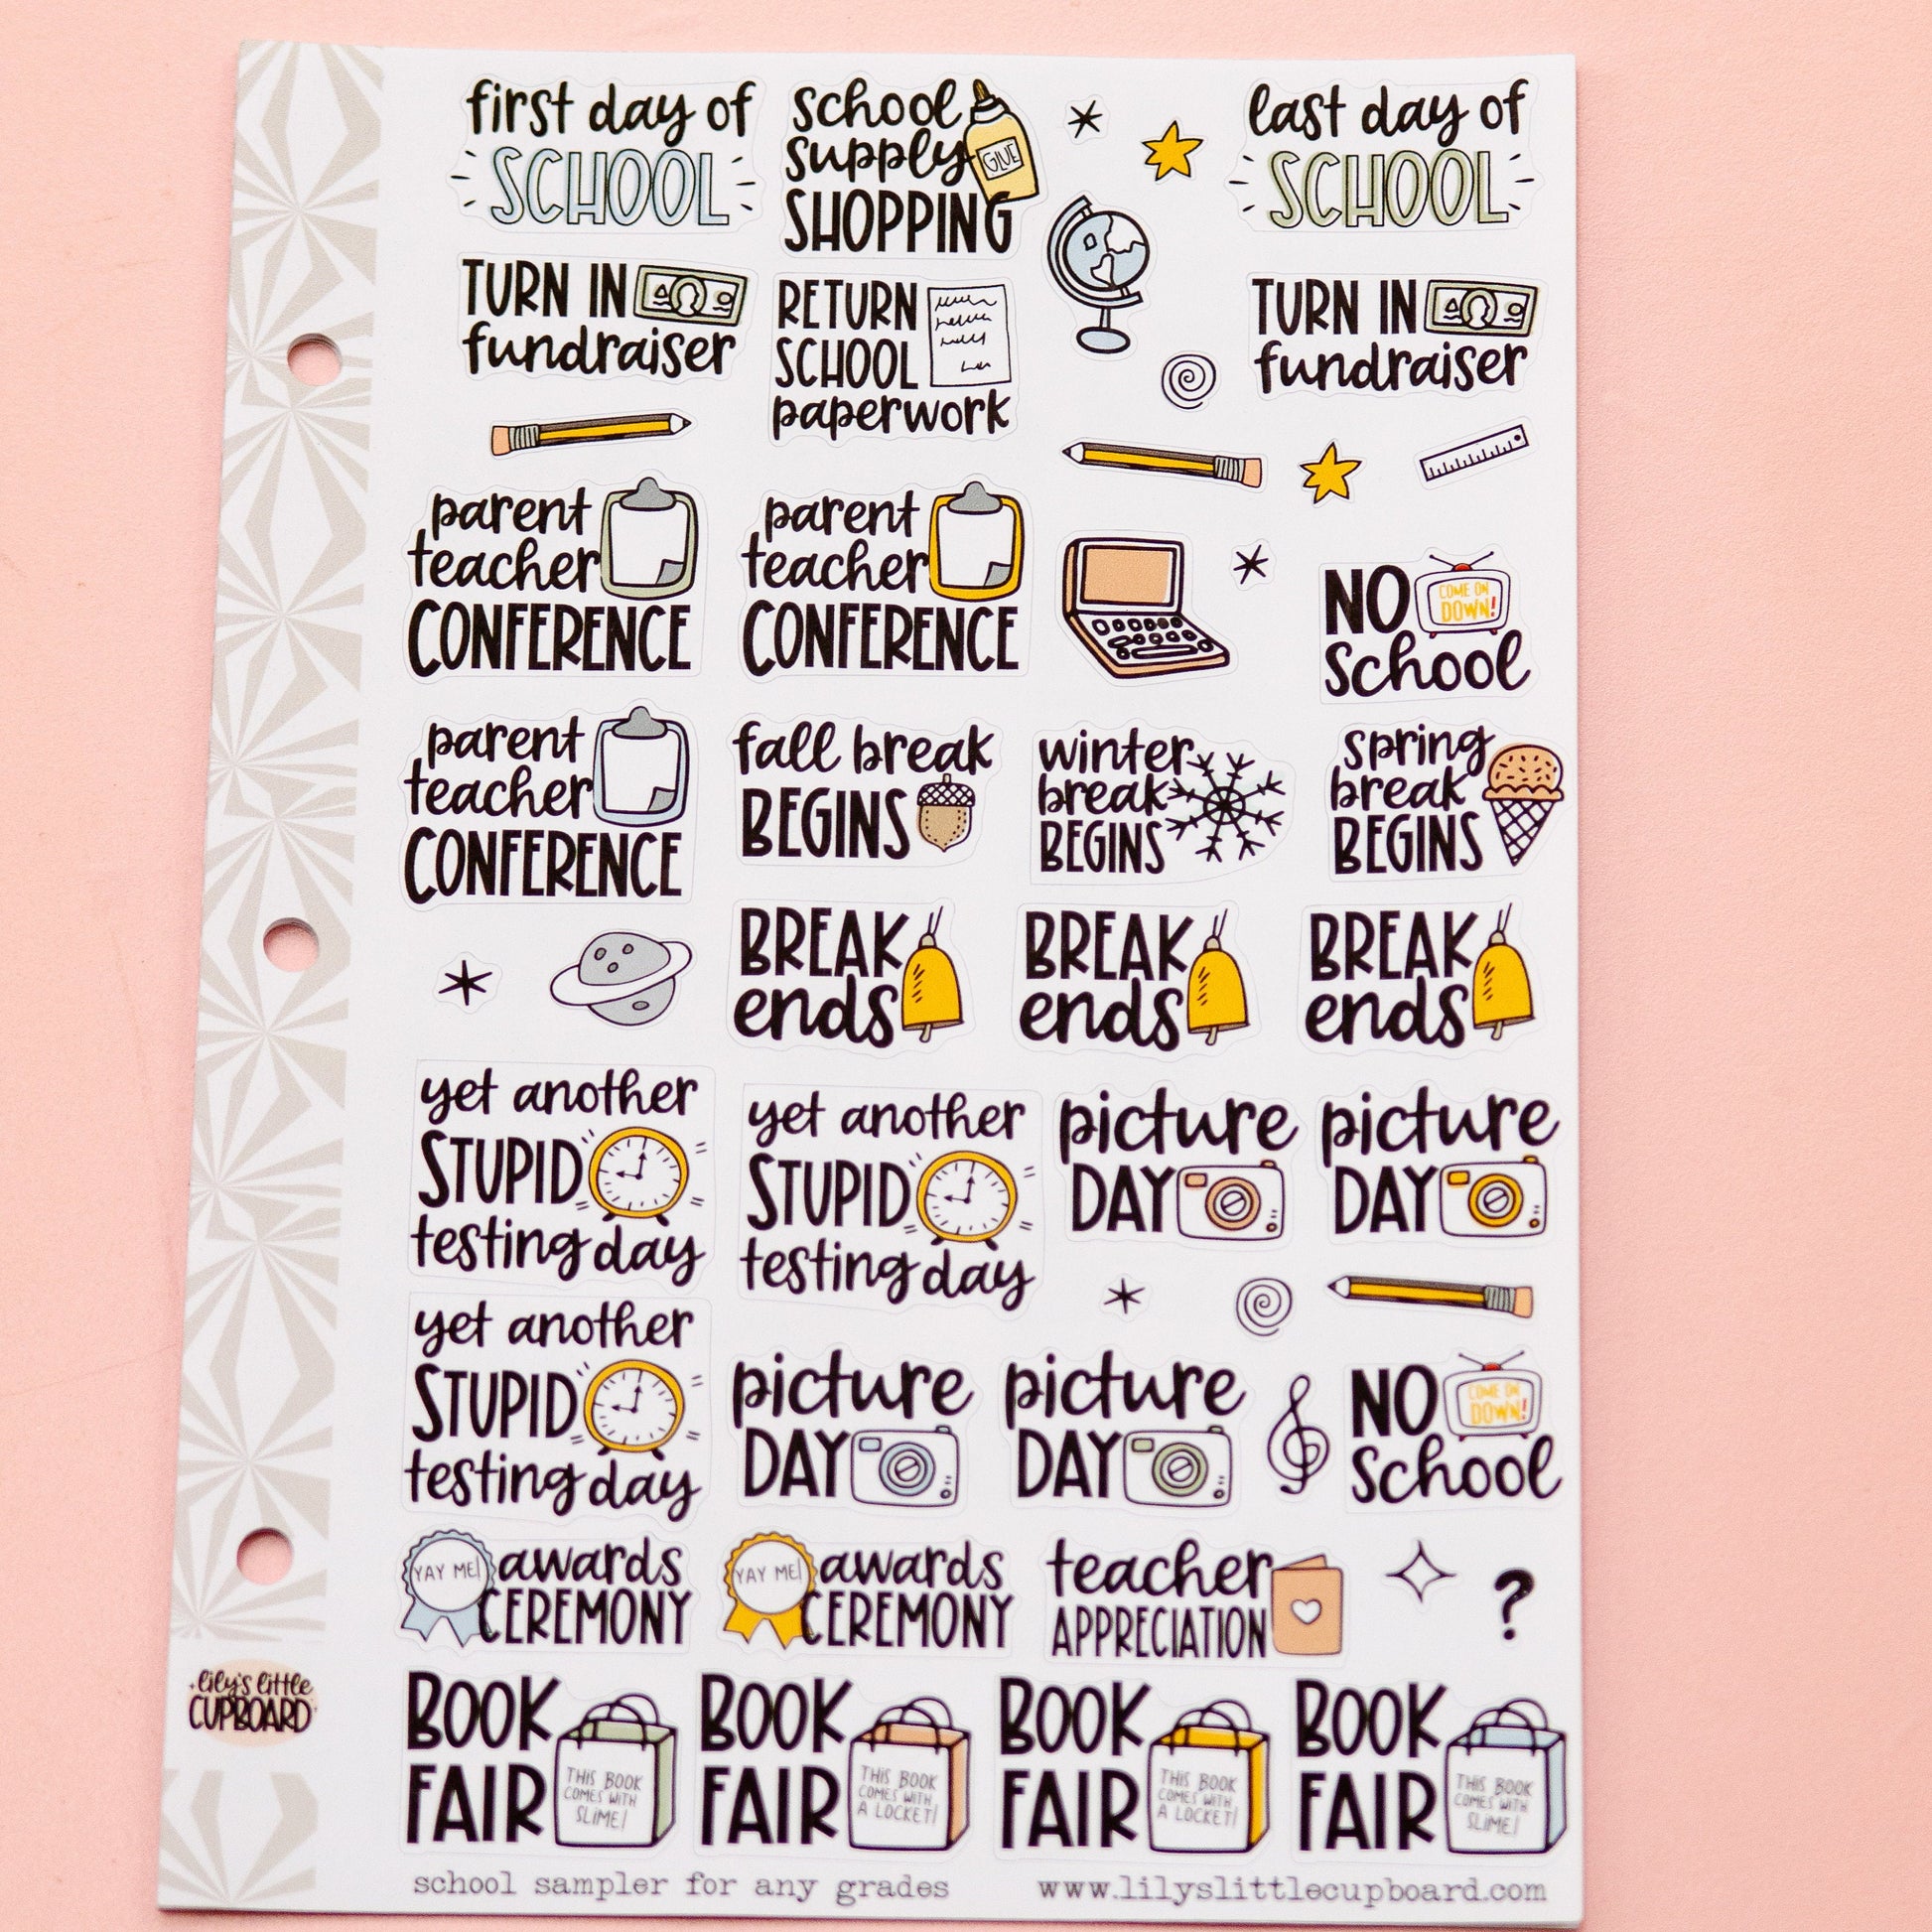 first day of
SCHOOL
school
supply
SHOPPING
GLUE
last day of
SCHOOL
TURN IN
fundraiser
RETURN
SCHOOL
paperwork
TURN IN
fundraiser
parent
teacher
CONFERENCE
parent
teacher
CONFERENCE
NO
COME ON
DOWN!
School
parent
teacher
CONFERENCE
fall break
BEGINS
winter
break
BEGINS
spring
break
BEGINS
BREAK
ends
BREAK
ends
BREAK
ends
yet another
STUPID
testing day
yet another
STUPID
testing day
picture
DAY
picture
DAY
yet another
STUPID
testing day
picture
DAY
picture
DAY
NO
COME ON
DOWN!
School
YAY ME!
awards
CEREMONY
YAY ME!
awards
CEREMONY
teacher
APPRECIATION
?
lily's little
CUPBOARD
BOOK
FAIR
THIS BOOK
COMES WITH
SLIME!
BOOK
FAIR
THIS BOOK
COMES WITH
A LOCKET!
BOOK
FAIR
THIS BOOK
COMES WITH
A LOCKET!
BOOK
FAIR
THIS BOOK
COMES WITH
SLIME!
school sampler for any grades
www.lilyslittlecupboard.com